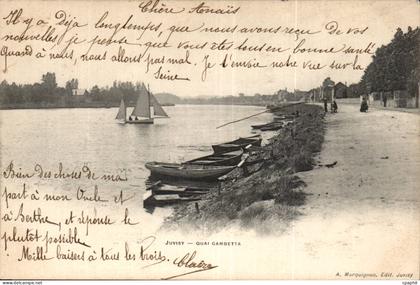 Chère Anaïs
Il y a Déja longtemps, que nous avons reçu De vos
nouvelles je pense que vous êtes tous en bonne santé
Quand à nous, nous allons pas mal. Je t'envoie notre vue sur la
Seine
Bien des choses de ma
part à mon Oncle et
à Berthe, et réponse le
plutôt possible
Mille baisers à tous les trois
Claire
JUVISY — QUAI GAMBETTA
A. Marquignon, Edit. Juvisy